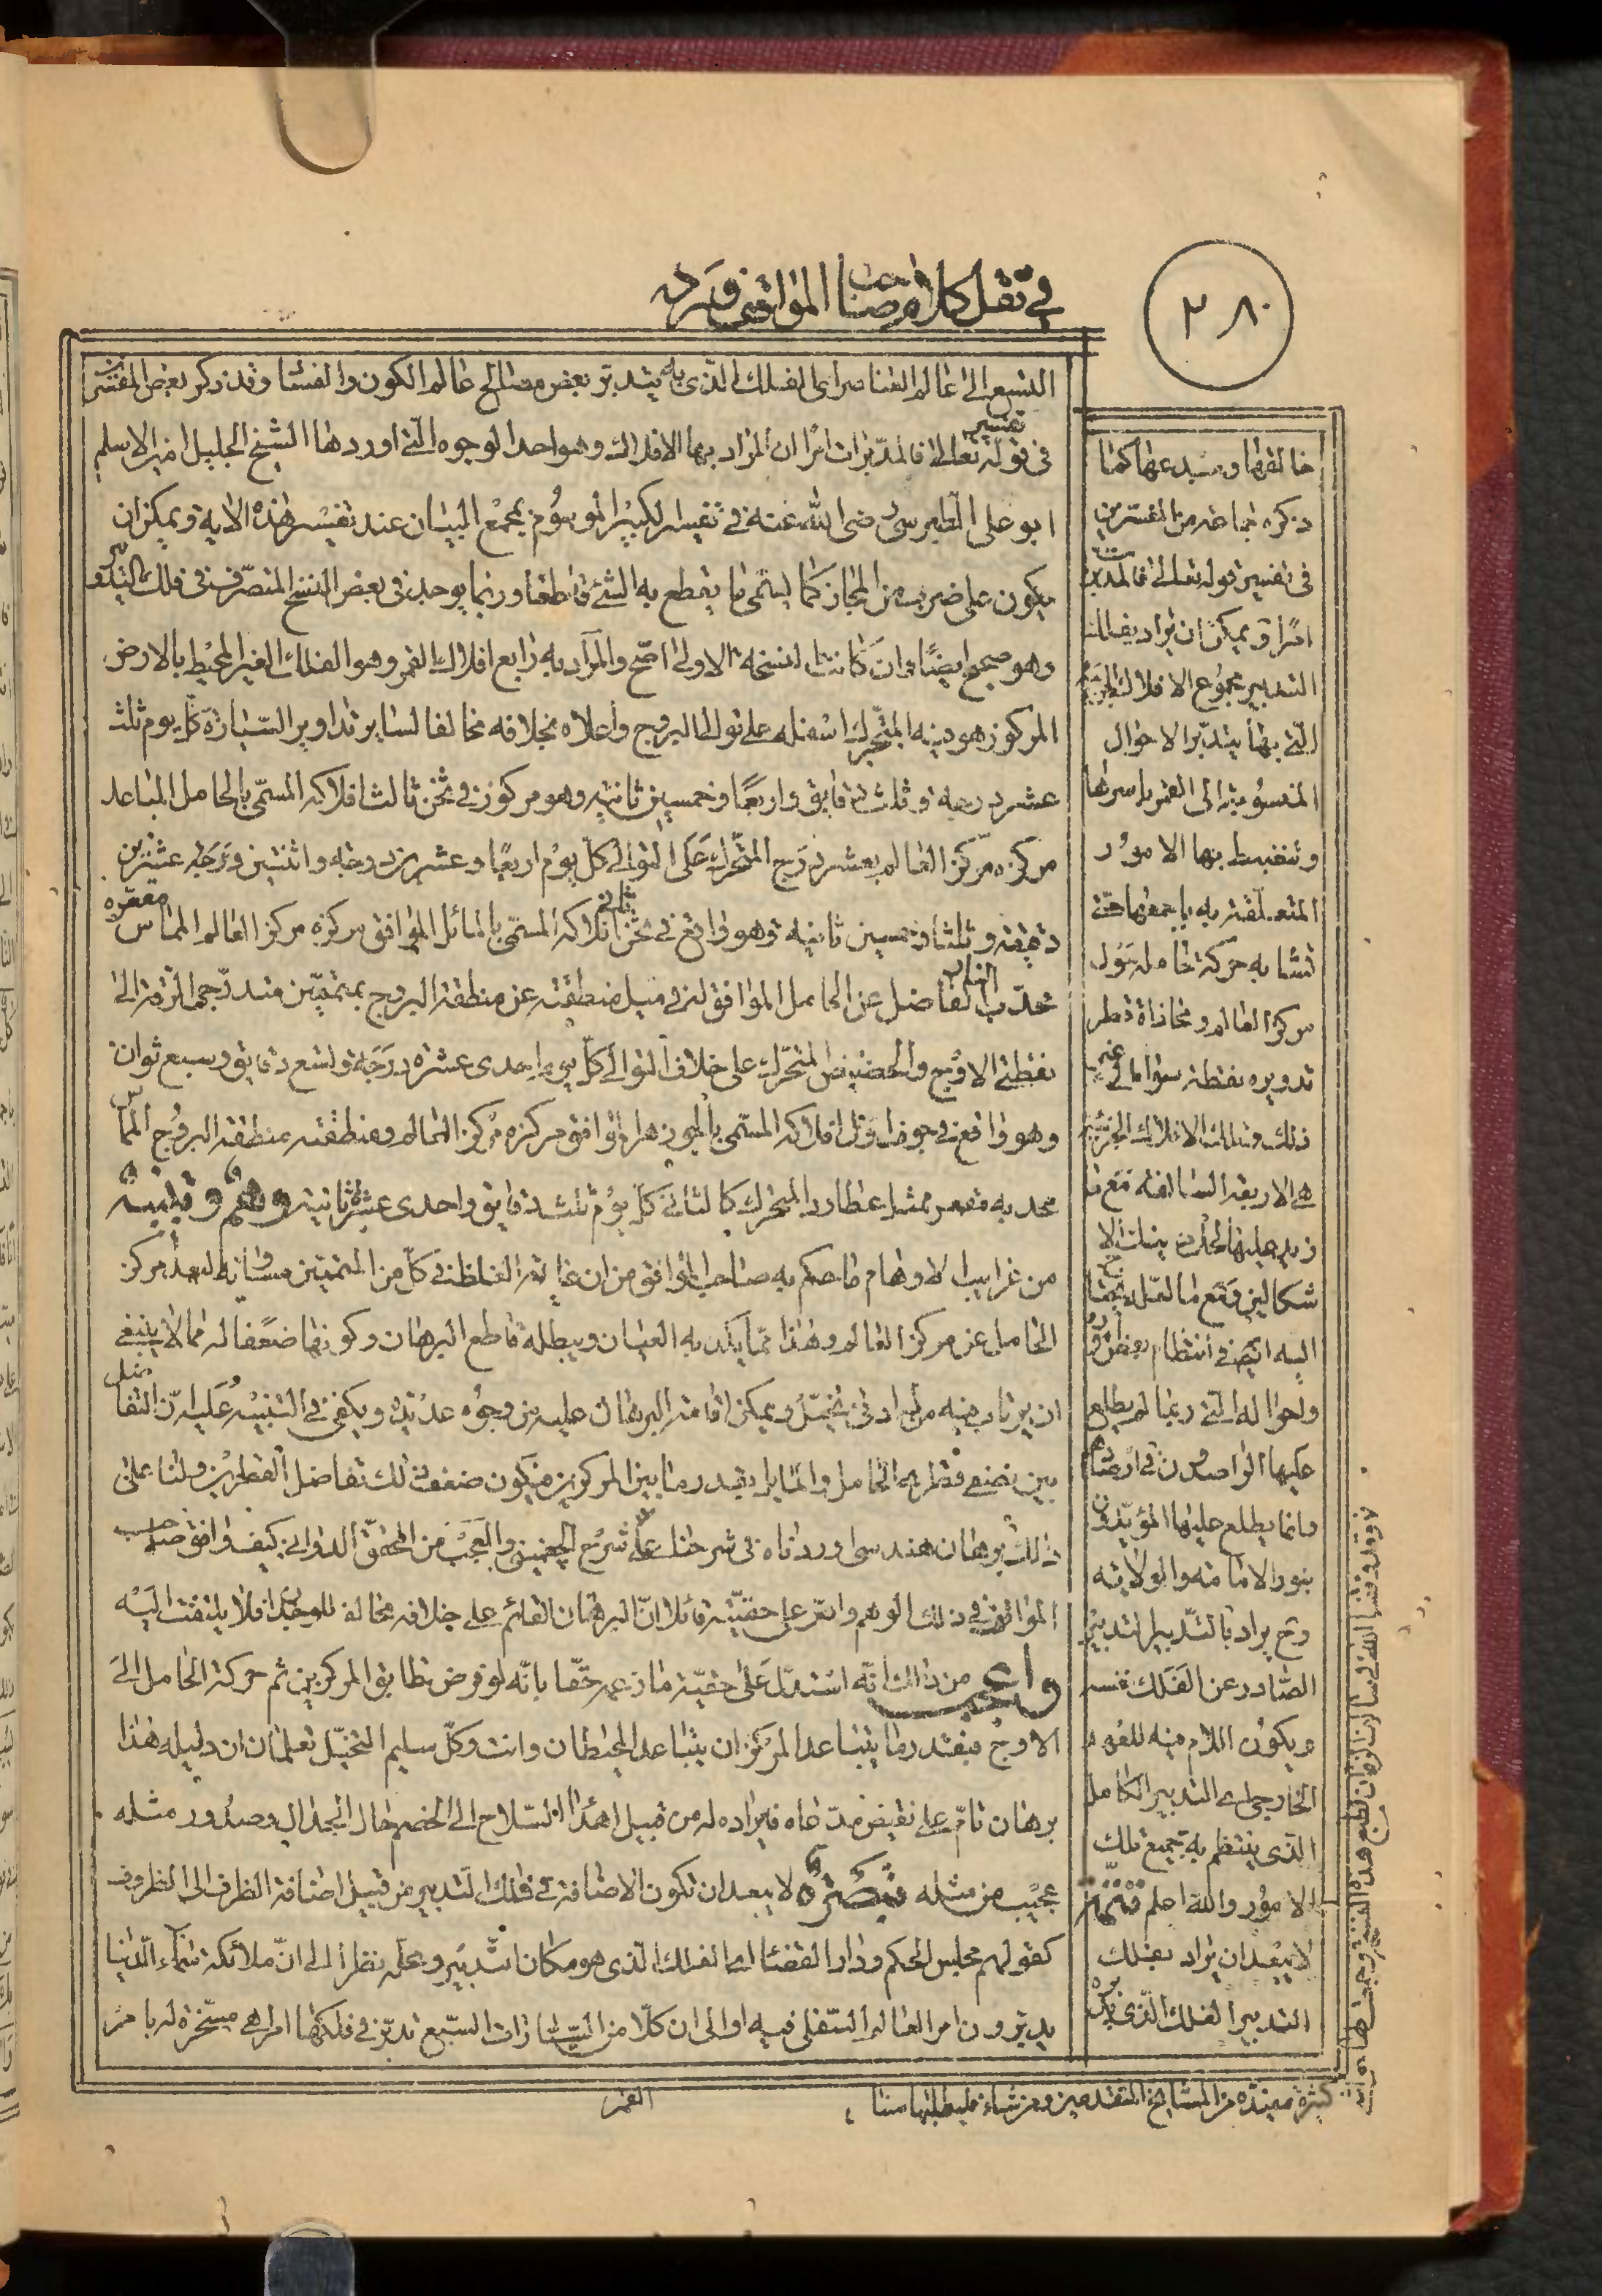 ٢٨٠
في نقل كلام صاحب المواقف ورده
التسع الى عالم العناصر اى الفلك الذى به يتدبر بعض مصالح عالم الكون والفساد وقد ذكر بعض المفسرين
فى تفسير قوله تعالى فالمدبرات امرا ان المراد بها الافلاك وهو احد الوجوه التى اوردها الشيخ الجليل امين الاسلم
ابو على الطبرسى رضى الله عنه فى تفسيره الكبير الموسوم بمجمع البيان عند تفسير هذه الاية ويمكن ان
يكون على ضرب من المجاز كما يسمى ما يقطع به الشئ قاطعا وربما يوجد فى بعض النسخ المتصرف فى فلك التدوير
وهو صحيح ايضا وان كانت النسخة الاولى اصح والمراد به رابع افلاك القمر وهو الفلك الغير المحيط بالارض
المركوز هو فيه المتحرك اسفله على توالى البروج واعلاه بخلافه مخالفا لساير تداوير السيارة كل يوم ثلث
عشر درجة وثلث دقايق واربعا وخمسين ثانية وهو مركوز فى ثخن ثالث افلاكه المسمى بالحامل المباعد
مركزه مركز العالم بعشر درج المتحرك على التوالى كل يوم اربعا وعشرين درجة واثنتين وعشرين
دقيقة وثلثا وخمسين ثانية وهو واقع فى ثخن ثانى افلاكه المسمى بالمائل الموافق مركزه مركز العالم المماس مقعره
محدب النار الفاضل عن الحامل الموافق له فى ميل منطقته عن منطقة البروج بمتممين متدرجى الرقة الى
نقطتى الاوج والحضيض المتحرك على خلاف التوالى كل يوم احدى عشرة درجة وتسع دقايق وسبع ثوان
وهو واقع فى جوف اول افلاكه المسمى بالجوزهر الموافق مركزه مركز العالم ومنطقته منطقة البروج المماس
محدبه مقعر ممثل عطارد المتحرك كالثانى كل يوم ثلث دقايق واحدى عشرة ثانية وهم وتنبيه
من غرايب الاوهام ما حكم به صاحب المواقف من ان غاية الغلظ فى كل من المتممين مساوية لبعد مركز
الحامل عن مركز العالم وهذا مما يكذبه العيان ويبطله قاطع البرهان وكونها ضعفا له مما لا ينبغى
ان يرتاب فيه من له ادنى تخيل ويمكن اقامة البرهان عليه من وجوه عديدة ويكفى فى التنبيه عليه ان التفاضل
بين نصفى قطرى الحامل والمايل بقدر ما بين المركزين فيكون ضعف ذلك تفاضل القطرين ولنا على
ذلك برهان هندسى اوردناه فى شرحنا على شرح الچغمينى والعجب من المحقق الدوانى كيف وافق صاحب
المواقف فى ذلك الوهم واصر على حقيته قائلا ان البرهان القائم على خلافه مخالف للوجدان فلا يلتفت اليه
واعجب من ذلك انه استدل على حقية ما زعمه حقا بانه لو فرض تطابق المركزين ثم حركة الحامل الى
الاوج فبقدر ما يتباعد المركزان يتباعد المحيطان وانت وكل سليم التخيل تعلمان ان دليله هذا
برهان تام على نقيض مدعاه فايراده له من قبيل اهداء السلاح الى الخصم حال الجدال وصدور مثله
عجيب من مثله تبصرة لا يبعد ان تكون الاضافة فى فلك التدبير من قبيل اضافة الظرف الى المظروف
كقولهم مجلس الحكم ودار القضاء اى الفلك الذى هو مكان التدبير ومحله نظرا الى ان ملائكة سماء الدنيا
يدبرون امر العالم السفلى فيه او الى ان كلا من السيارات السبع تدبر فى فلكها امرا هى مسخرة له بامر
خالقها ومبدعها كما
ذكره جماعة من المفسرين
فى تفسير قوله تعالى فالمدبرات
امرا ويمكن ان يراد بفلك
التدبير مجموع الافلاك الجزئية
التى بها يتدبر الاحوال
المنسوبة الى القمر باسرها
وتنضبط بها الامور
المتعلقة به باجمعها حتى
تشابه حركة حامله حول
مركز العالم ومحاذاة قطر
تدويره نقطة سواه الى غير
ذلك وتلك الافلاك الجزئية
هى الاربعة السالفة مع ما
زيد عليها لحل ذينك الا
شكالين ومع ما لعله يحتاج
اليه ايضا فى انتظام بعض امور
واحواله التى ربما لم يطلع
عليها الراصدون فى ارصادهم
وانما يطلع عليها المؤيدون
بنور الامامة والولاية
وح يراد بالتدبير التدبير
الصادر عن الفلك نفسه
ويكون اللام فيه للعهد
الخارجى اى التدبير الكامل
الذى ينتظم به جميع تلك
الامور والله اعلم تتمة
لا يبعد ان يراد بفلك
التدبير الفلك الذى يدبره
كثيرة من المشايخ المتقدمين ومن شاء فليطلبها منا
القمر